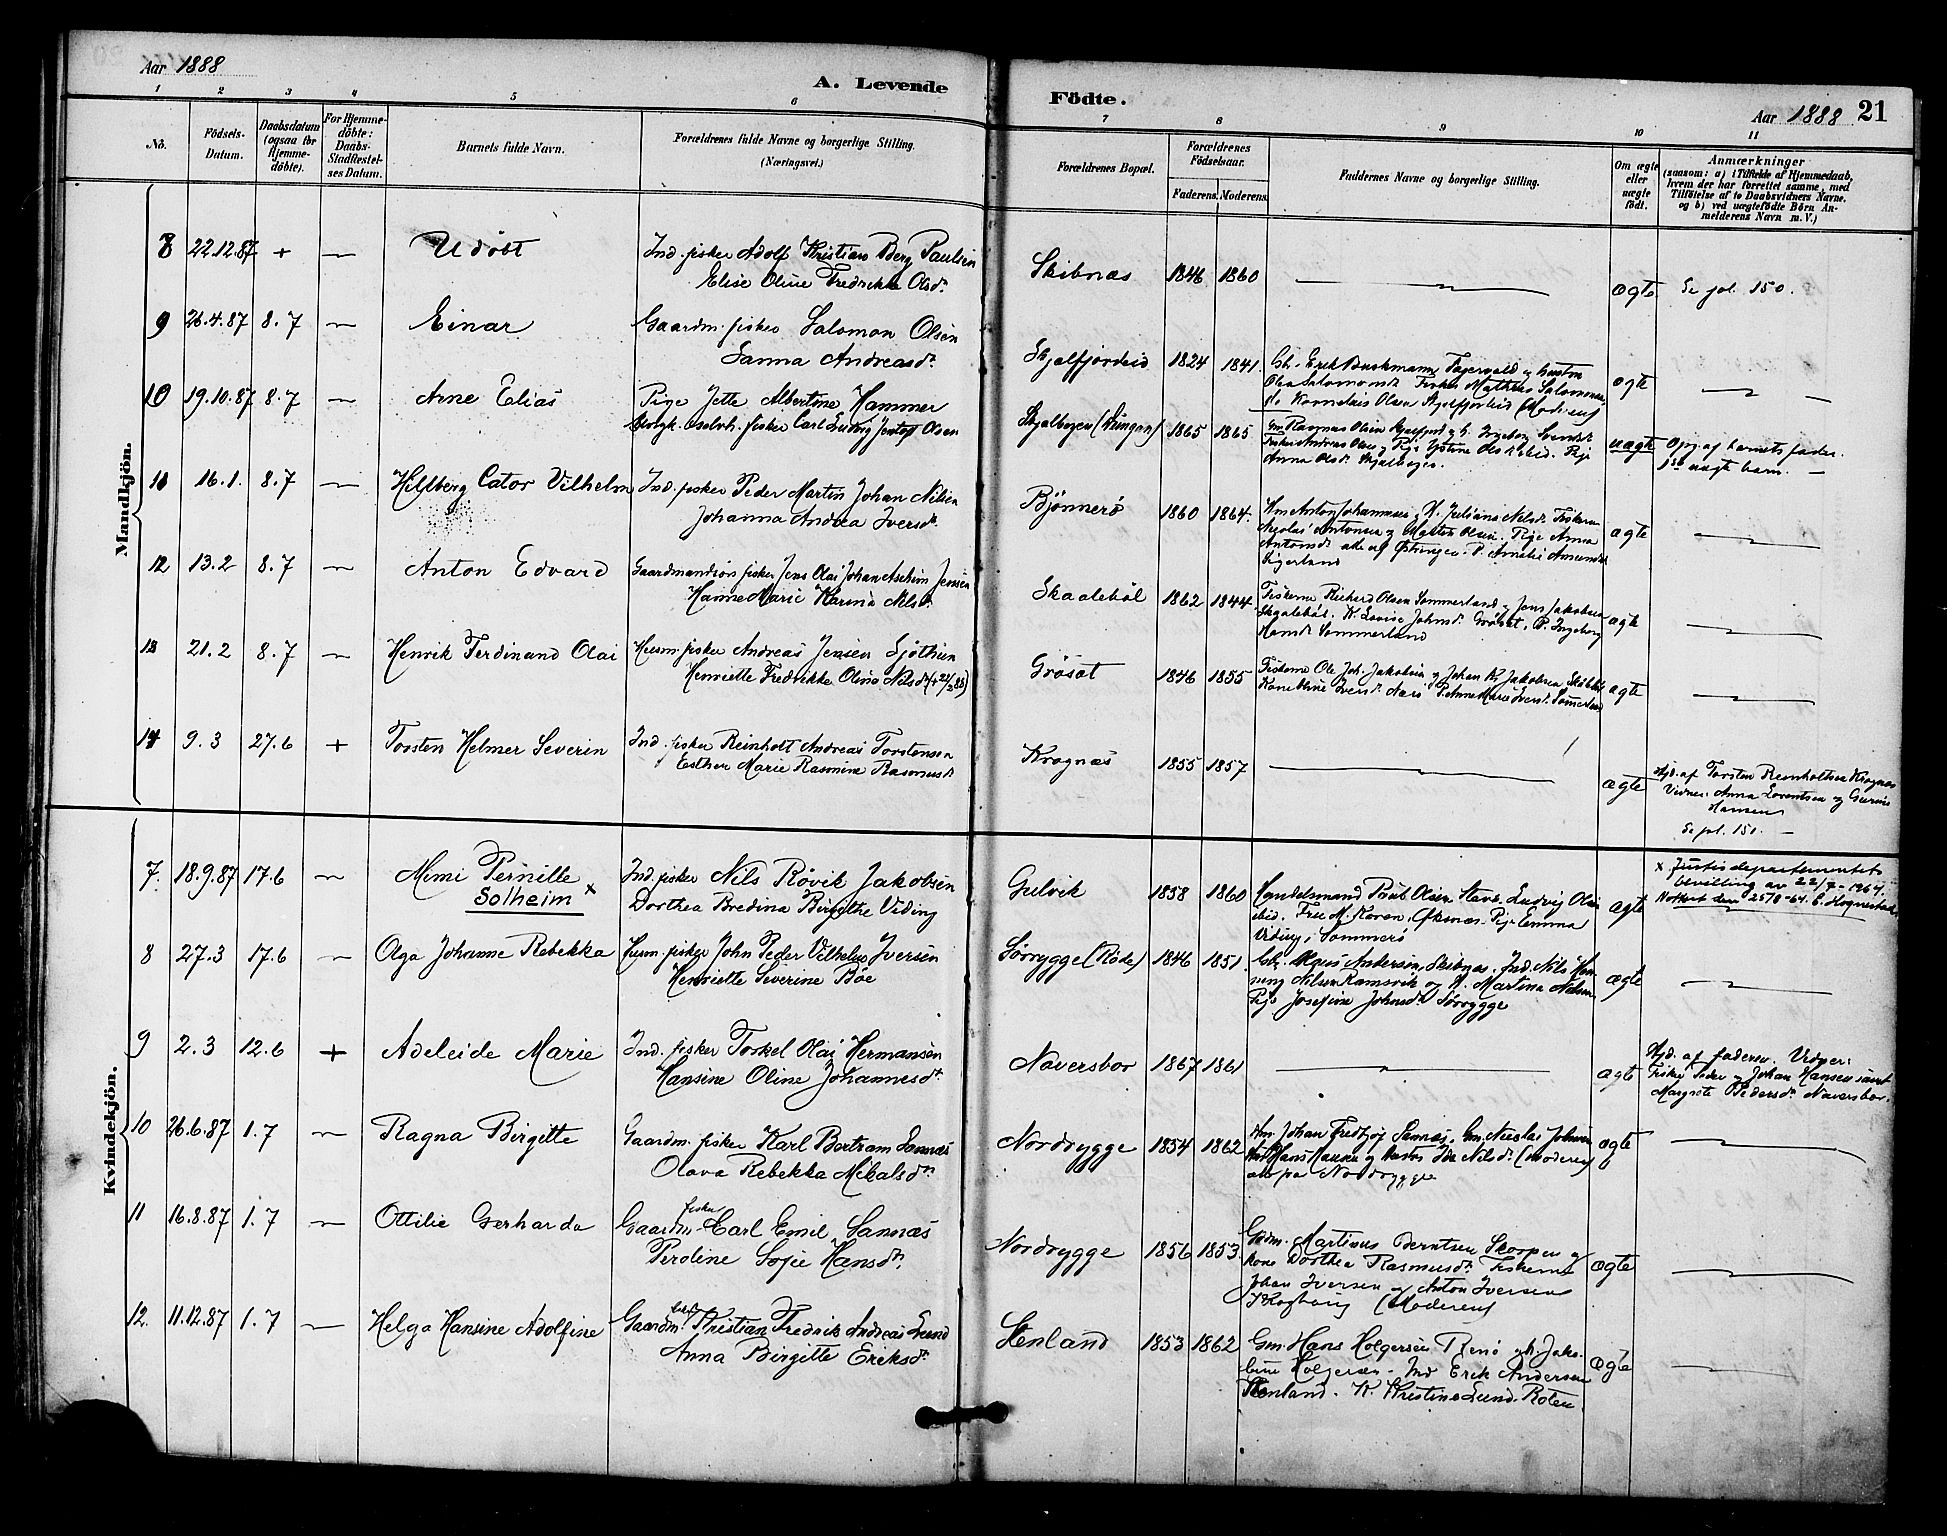 Aar 1888
A. Levende
Födte.
Aar 1888 21
1 2 3 4 5 6 7 8 9 10 11
No.
Födsels-
Datum.
Daabsdatum
(ogsaa for
Hjemme-
döbte).
For Hjemme-
döbte:
Daabs-
Stadfæstel-
ses Datum.
Barnets fulde Navn.
Forældrenes fulde Navne og borgerlige Stilling.
(Næringsvei.)
Forældrenes Bopæl.
Forældrenes
Födselsaar.
Faderens. Moderens.
Faddernes Navne og borgerlige Stilling.
Om ægte
eller
uægte
födt.
Anmærkninger
(saasom: a) i Tilfælde af Hjemmedaab,
hvem der har forrettet samme, med
Tilföielse af to Daabsvidners Navne.
og b) ved uægtefödte Börn An-
melderens Navn m. V.)
Mandkjön.
8 22.12.87 + — Udöbt
Ind. fisker Adolf Kristian Berg Paulsen
Elise Oline Fredrikke Olsdr
Skibnæs 1846 1860 — ægte Se pol. 150.
9 26.4.87 8.7 — Einar
Gaardm. fisker Salomon Olsen
Sanna Andreasdr
Skjelfjordeid 1824 1841
Olea Salomonsdr Fisker Mathias Salomonsen
Kornelius Olsen Skjelfjordeid (Moderen)
ægte —
10 19.10.87 8.7 — Arne Elias
Pige Jette Albertine Hammer
fisker Carl Ludvig Olsen
1865 1865
Gm Rasmus Olsen
Anna Olsdr
uægte Opg. af barnets fader.
1ste uægte barn. —
11 16.1. 8.7 — Hillberg Cator Vilhelm
Ind. fisker Peder Martin Johan Nilsen
Johanna Andrea Iversdr
Bjönnerö 1860 1864
Anton Johannesen Juliane Nilsdr Fiskerne
Nicolai Antonsen og Olsen. Pige Anna
Antonsdr
ægte —
12 13.2 8.7 — Anton Edvard
Gaardmandsön fisker Jens Olai Johan Jensen
Hanne Marie Karina Nilsdr
Skaaleböl 1862 1844
Fiskerne Richard Olsen Sommerland og Jens Jakobsen
Skaalebøl. K. Lovise Johnsdr Grösæt, P. Ingeborg
Hansdr Sommerland
ægte —
13 21.2 8.7 — Henrik Ferdinand Olai
Husm. fisker Andreas Jensen
Henriette Fredrikke Olina Nilsdr
Grösæt 1846 1855
Fiskerne Ole Joh. Jakobsen og Johan K. Jakobsen
ægte —
14 9.3 27.6 + Torsten Helmer Severin
Ind. fisker Reinholt Andreas Torstensen
Esther Marie Rasmine Rasmusdr
Kragnæs 1855 1857 — ægte
Hjd. af Torsten Reinholtsen Kragnæs
Vidner: Anna Lorentsen og
Hansen
Se pol. 151. —
Kvindekjön.
7. 18.9.87 17.6 — Mimi Pernille
Solheim x
Ind. fisker Nils Rövik Jakobsen
Dorthea Bredina Birgithe Viding
Gulvik 1858 1860
Olsen Ludvig Olai
Öksnæs. Pige Emma
Viding, Sommerö
ægte
x Justisdepartementets
bevilling av 22/7-1964.
Notert den 25/8-64.
8 27.3 17.6 — Olga Johanne Rebekka
Husm. fisker John Peder Vilhelm Iversen
Henriette Severine Böe
Sörrygge 1846 1851
Andersen, Skibnæs. Ind. Nils Hen-
ning Nilsen Ramsvik og K. Martina Nilsen
Pige Josefine Johnsdr Sörrygge
ægte —
9 2.3 12.6 + Adeleide Marie
Ind. fisker Torkel Olai Hermansen
Hansine Oline Johannesdr
Naversbor 1867 1861 — ægte
Hjd. af faderen. Vidner:
Fisker Peder og Johan Hansen samt
Margrete Pedersdr Naversbor.
10 26.6.87 1.7 — Ragna Birgitte
Gaardm. fisker Karl Bertram Sannæs
Olava Rebekka Mikalsdr
Nordrygge 1854 1862
Johan Fredhjof Sannæs, Gm. Nicolai Johnsen
Hans Hansen og Ida Nilsdr (Moderen)
alle paa Nordrygge
ægte —
11 16.8.87 1.7 — Ottilie Gerharda
fisker
Gaardm. Carl Emil Sannæs
Peroline Sofie Hansdr.
Nordrygge 1856 1853
Gaardm. Martinus Berntsen Skorpen og
kone Dorthea Rasmusdr. Fiskerne
Johan Iversen og Anton Iversen
(Moderen)
ægte —
12. 11.12.87 1.7 — Helga Hansine Adolfine
fisker
Gaardm. Kristian Fredrik Andreas Lund
Anna Birgitte Eriksdr
Stenland 1853 1862
Gm. Hans Holgersen Renö og h. Jako-
bine Holgersen. Ind Erik Andersen
Stenland. K. Kristine Lund. Roten
ægte —